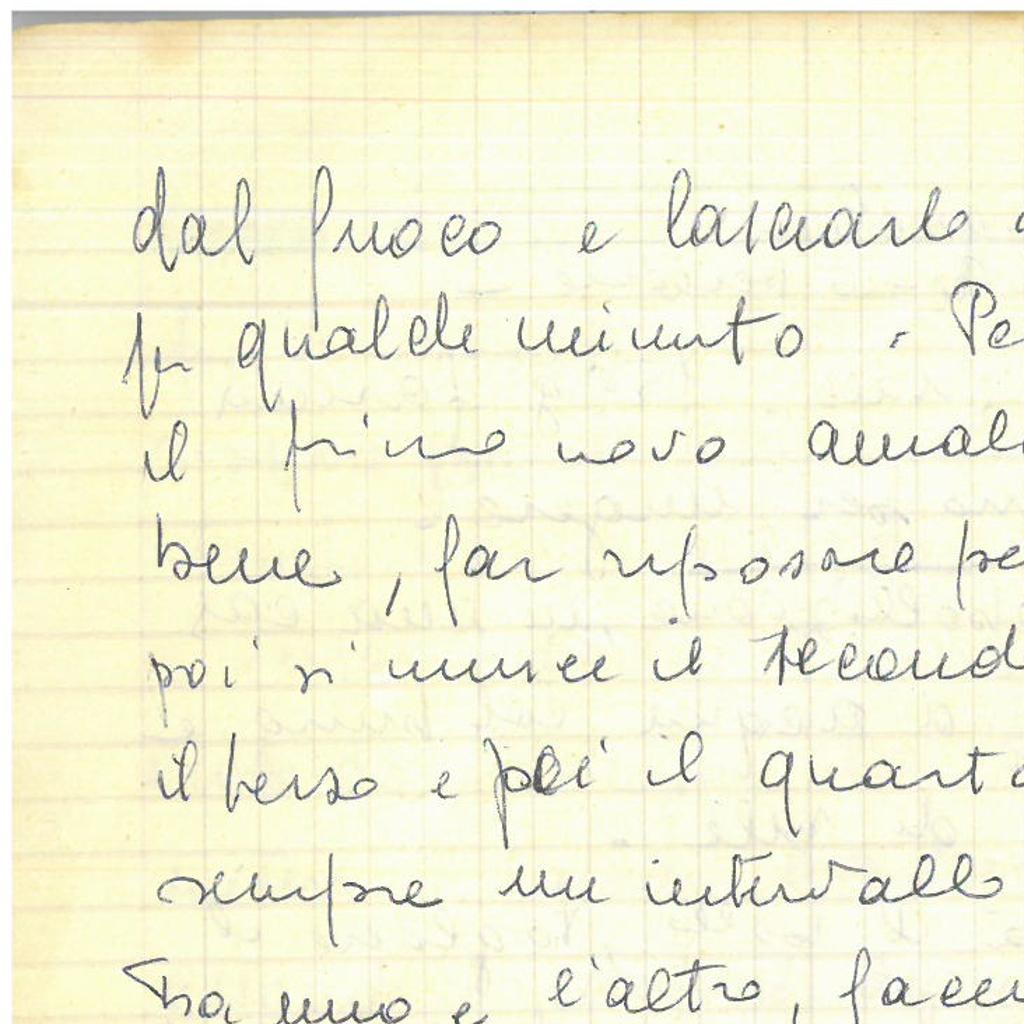 dal fuoco e lasciarlo
per qualche minuto. Pe
il primo uovo amal
bene, far riposare pe
poi si unisce il second
il terzo e poi il quarto
sempre un intervallo
Tra uno e l'altro, facen